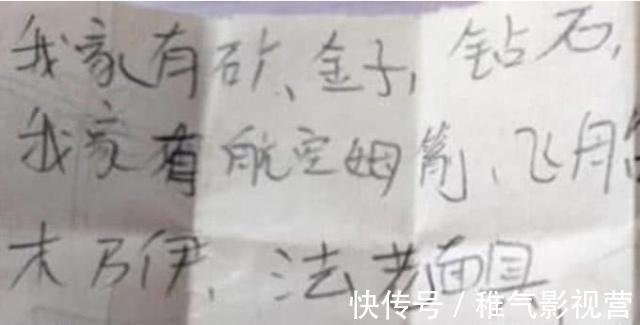 我家有矿、金子,钻石,
我家有航空姆舰、飞船
木乃伊、法老面具
快传号 / 稚气影视营